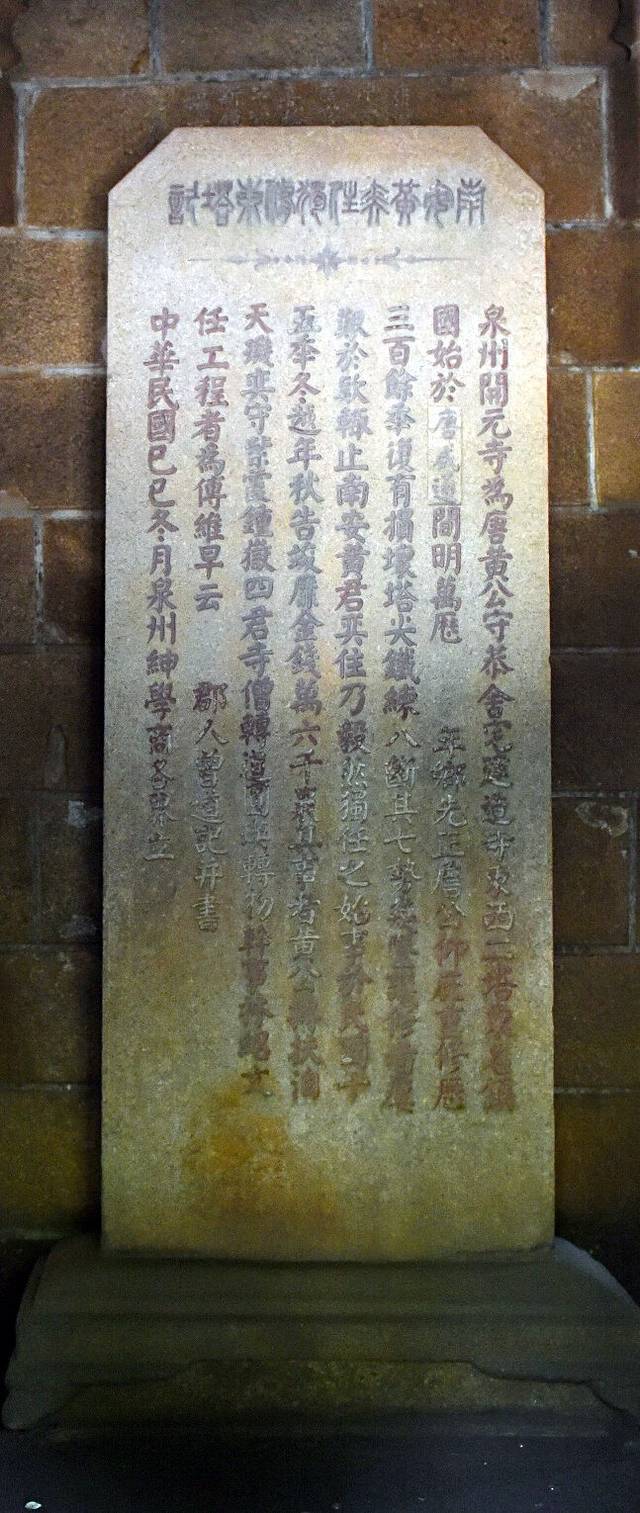 南安黃奕住獨修東塔記
泉州開元寺為唐黃公守恭舍宅建造寺東西二塔為名鎮
國始於唐咸通間明萬歷 年鄉先正詹公仰庇重修歷
三百餘年復有損壞塔尖鐵練八斷其七勢
於 止南安黃君奕住乃毅然獨任之始事於民國十
五年冬越年秋告竣靡金錢萬六千 董事者黃公
天 奕守紫霞鐘嶽四君寺僧轉道圓瑛轉物幹事
任工程者為傅維早云 郡人曾遒記并書
中華民國己巳冬月泉州紳學商各界立